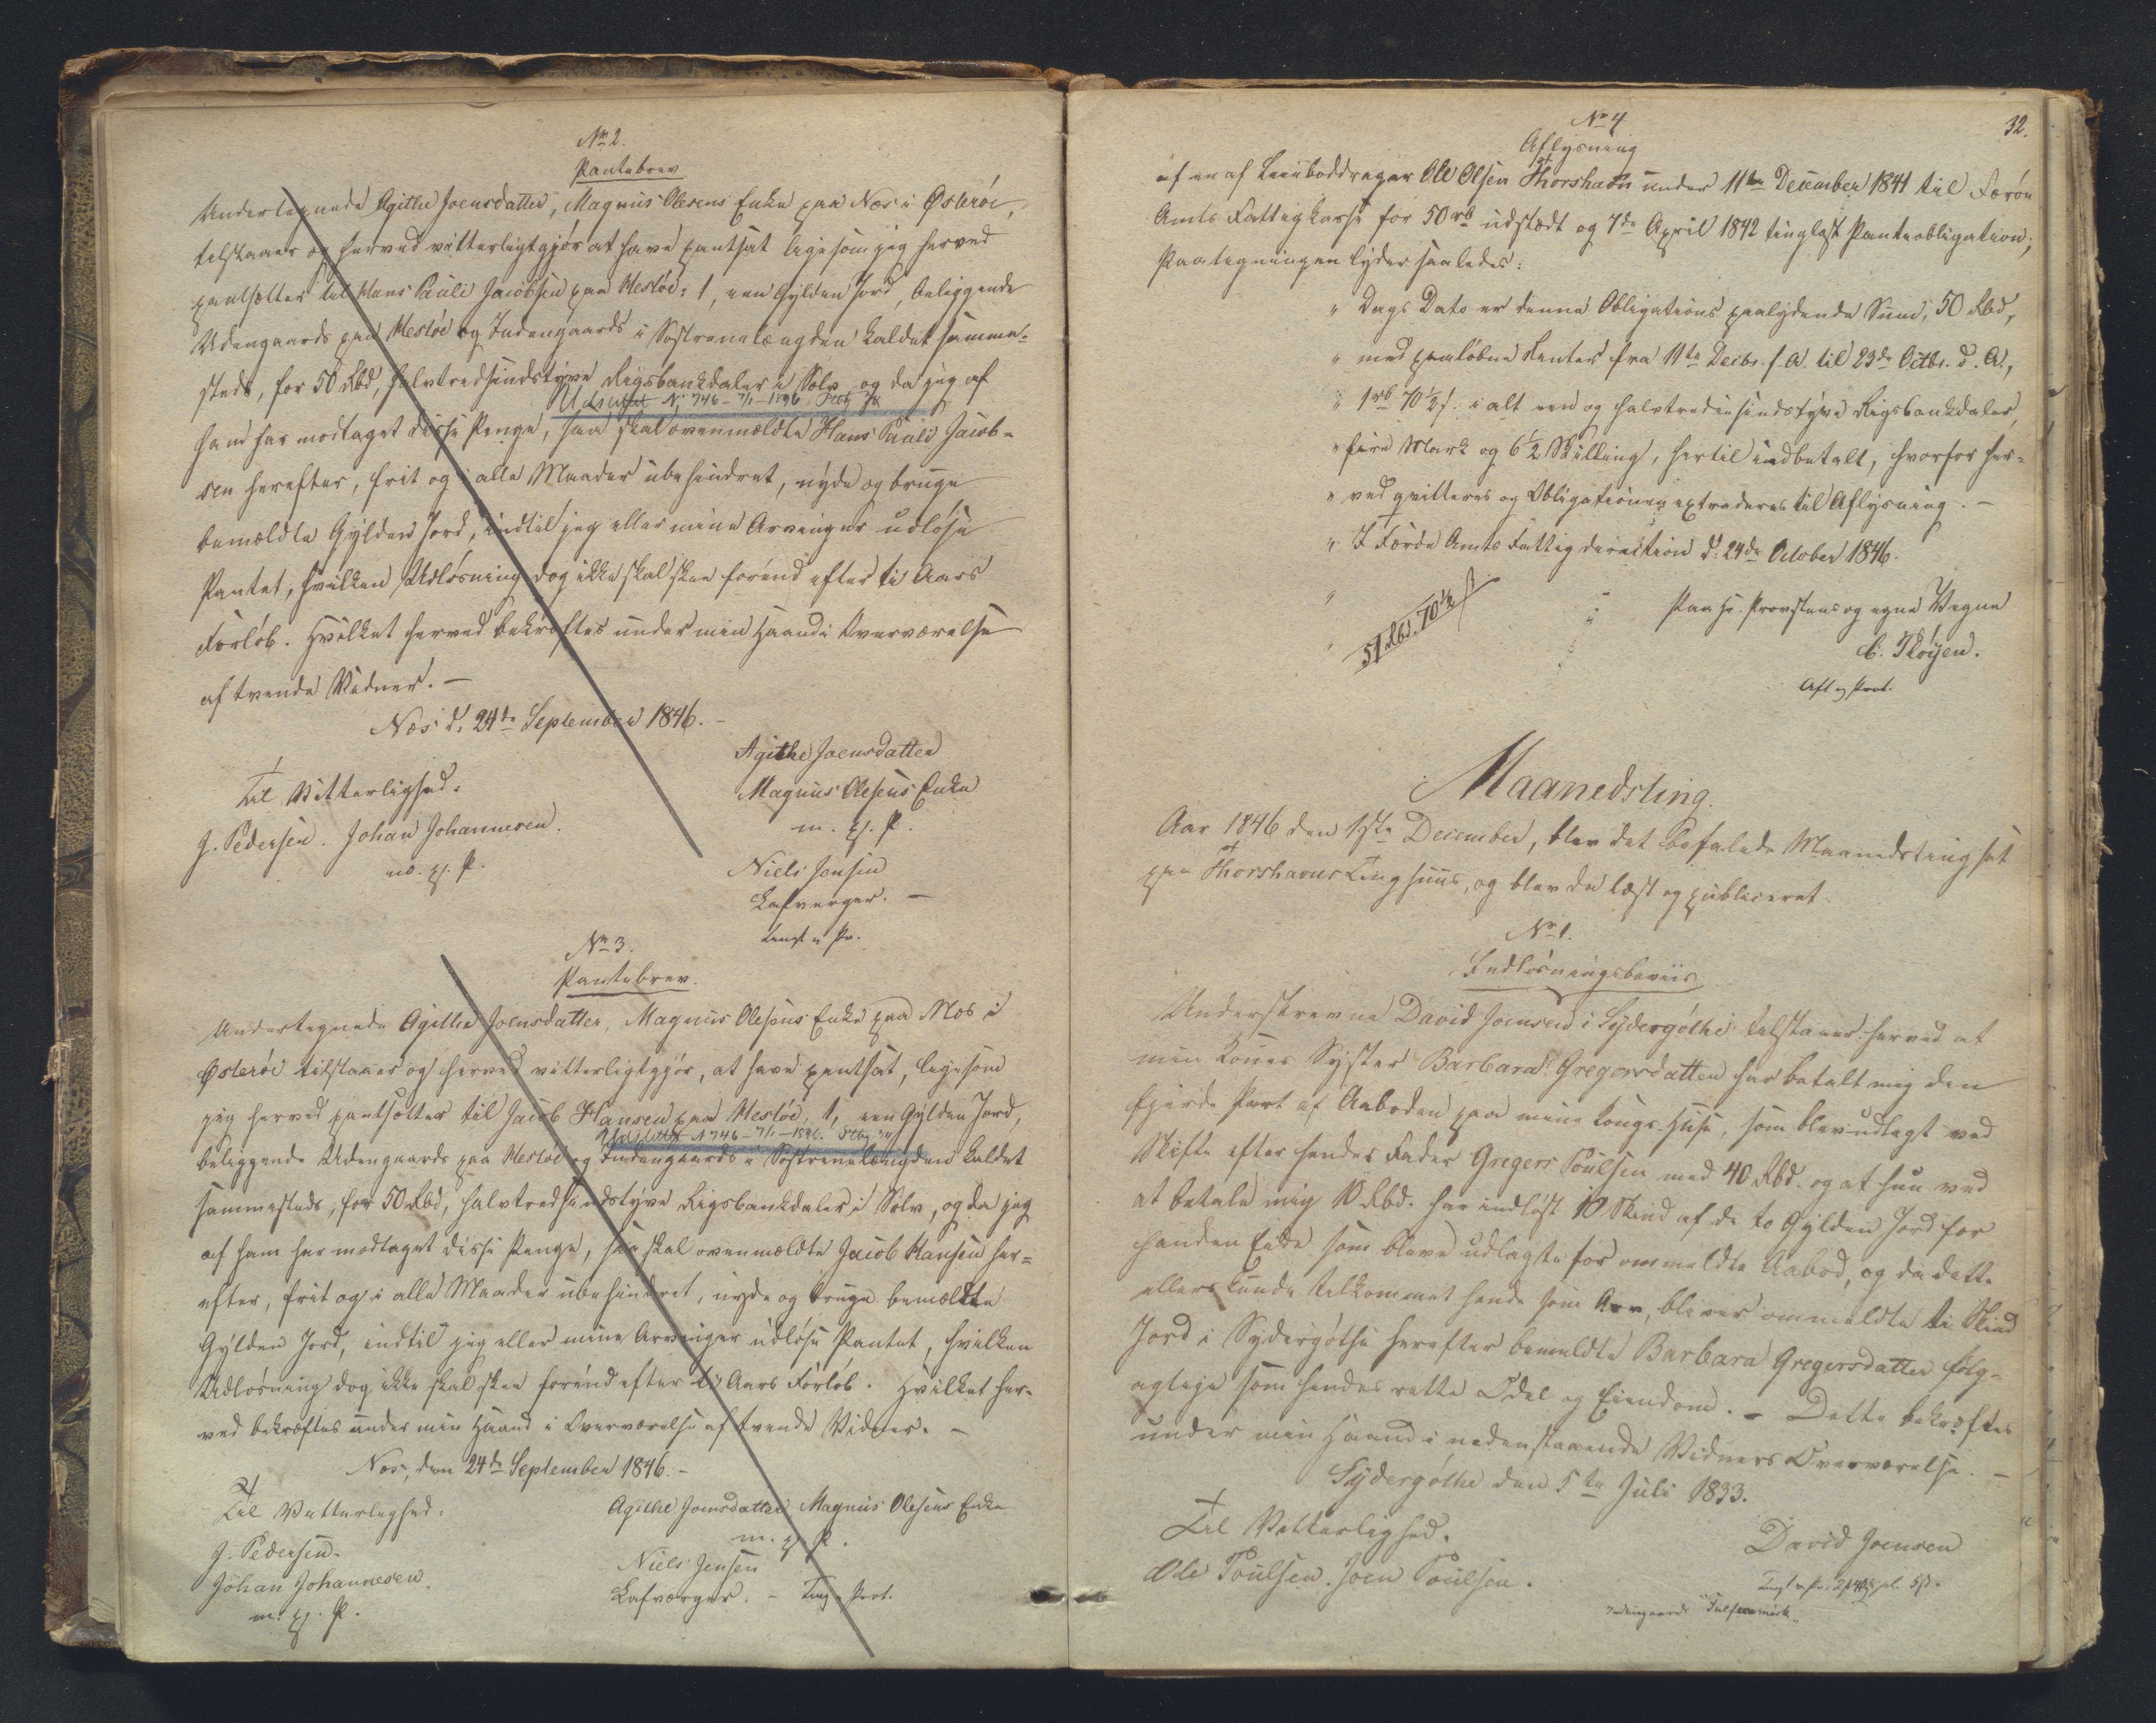 No 2.
Pantebrev
Undertegnede Agithe Joensdatter, Magnus Olesens Enke paa Næs i Østerøe,
tilstaaer og herved vitterligtgjør at have pantsat ligesom jeg herved
pantsætter til Hans Pauli Jacobsen paa Hestøe: 1, een Gylden Jord, beliggende
Udengaards paa Hestøe og Indengaards i Søstrenelængden kaldet samme-
steds, for 50 Rbd, halvtredsindstyve Rigsbankdaler i Sølv, og da jeg af
Udslettet No 746 - 7/1 - 1896.
ham har modtaget disse Penge, saa skal ovenmældte Hans Pauli Jacob-
sen herefter, frit og i alle Maader ubehindret, nyde og bruge
bemældte Gylden Jord, indtil jeg eller mine Arvinger udløse
Pantet, hvilken Udløsning dog ikke skal skee forend efter ti Aars
Forløb. Hvilket herved bekræftes under min Haand i Overværelse
af tvende Vidner. -
Næs d. 24de September 1846. -
Agithe Joensdatter
Til Vitterlighed:
Magnus Olesens Enke
J. Pedersen. Johan Johannesen.
m. f. P.
m. f. P.
Niels Jensen
Lafværger. -
Læst i Pr.
No 3.
Pantebrev.
Undertegnede Agithe Joensdatter, Magnus Olesens Enke paa Næs i
Østerøe tilstaaer og herved vitterligtgjør, at have pantsat, ligesom
jeg herved pantsætter til Jacob Hansen paa Hestøe, 1, een Gylden Jord,
Udslettet No 746 - 7/1 - 1896.
beliggende Udengaards paa Hestøe og Indengaards i Søstrenelængden kaldet
sammesteds, for 50 Rbd, halvtredsindstyve Rigsbankdaler i Sølv, og da jeg
af ham har modtaget disse Penge, saa skal ovenmældte Jacob Hansen her=
efter, frit og i alle Maader ubehindret, nyde og bruge bemældte
Gylden Jord, indtil jeg eller mine Arvinger udløse Pantet, hvilken
Udløsning dog ikke skal skee forend efter ti Aars Forløb. Hvilket her-
ved bekræftes under min Haand i Overværelse af tvende Vidner. -
Næs, den 24de September 1846. -
Til Vitterlighed:
Agithe Joensdatter Magnus Olesens Enke
m. f. P.
J. Pedersen.
Niels Jensen
Johan Johannesen.
Lafværger. - Ting. Prot.
m. f. P.
32.
No 4
Aflysning
af en af Liinboddrager Ole Olsen af Thorshavn under 11te December 1841 til Færøe
Amts Fattigkasse for 50 rb udstædt og 7de April 1842 tinglæst Panteobligation;
Paategningen lyder saaledes:
" Dags Dato er denne Obligations paalydende Sum, 50 Rbd,
" med paaløbne Renter fra 11te Decbr. f. A. til 23de Octbr. d. A.,
" 1 rb 70 1/2 s. i alt een og halvtredsindstyve Rigsbankdaler,
" fire Mark og 6 1/2 Skilling, hertil indbetalt, hvorfor her=
" ved qvitteres og Obligationen extraderes til Aflysning. -
" I Færøe Amts Fattigdirection d. 24de October 1846.
" Paa Hr. Provstens og egne Vegne
" 51 Rbd. 70 1/2 s
C. Pløyen.
Afl og Prot.
Maanedsting.
Aar 1846 den 1ste December, blev det befalede Maanedsting sat
paa Thorshavns Tinghuus, og blev da læst og publiceret.
No 1.
Indløsningsbeviis
Underskrevne David Joensen i Sydergöthe tilstaaer herved at
min Kones Syster Barbara Gregersdatter har betalt mig den
fjerde Part af Aaboden paa mine Kongs-Huse, som blev udlagt ved
Skifte efter hendes Fader Gregers Poulsen med 40 Rbd. og at hun ved
at betale mig 10 Rbd. har indløst 10 Skind af de to Gylden Jord for
handen Eide som bleve udlagte for ommeldte Aabod, og da dette
ellers kunde tilkommet hende som Arv, bliver ommeldte ti Skind
Jord i Sydergöthe herefter bemeldte Barbara Gregersdatter følg-
agtige som hendes rette Odel og Eiendom. - Dette bekræftes
under min Haand i nedenstaaende Vidners Overværelse. -
Sydergöthe den 5te Juli 1833.
Til Vitterlighed.
David Joensen
Ole Poulsen. Joen Poulsen.
Indengaards